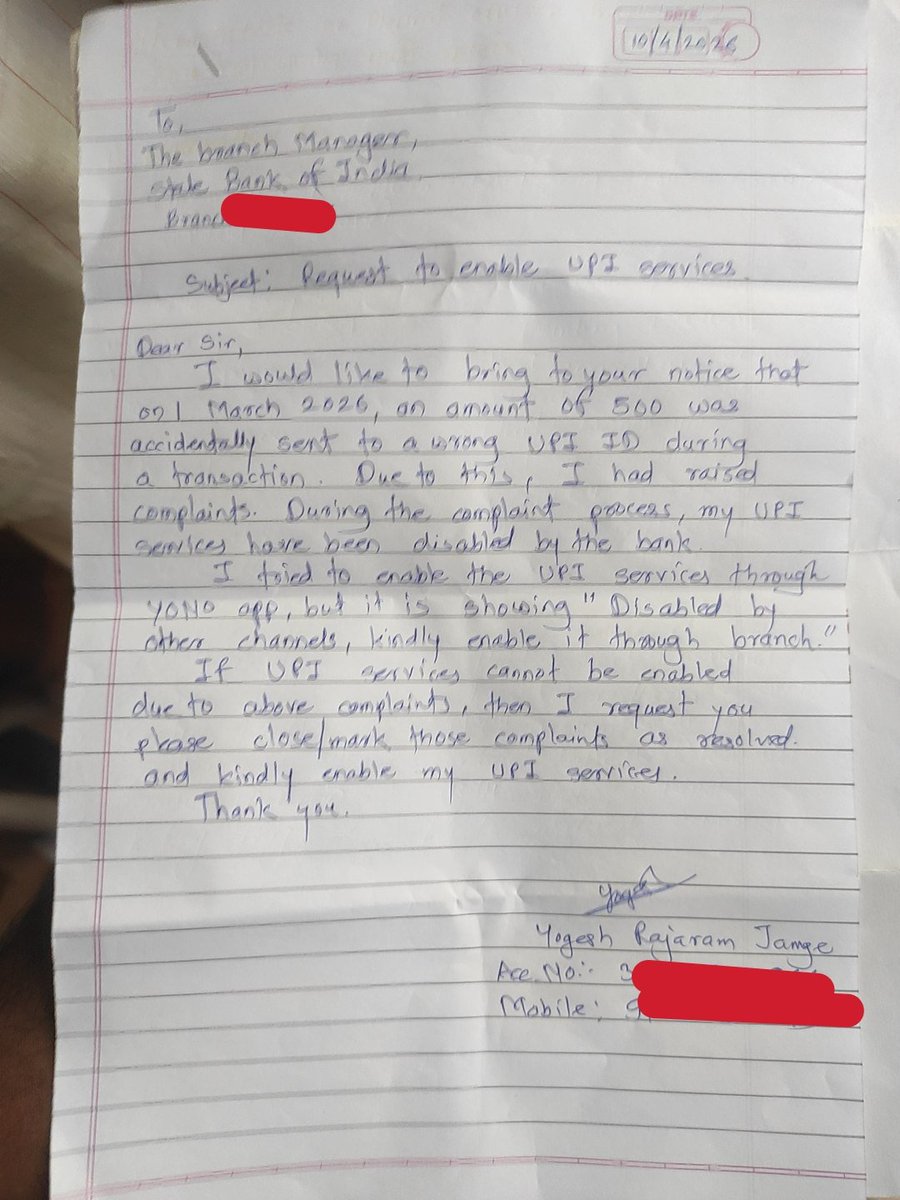 DATE
10/4/2026
To,
The branch Manager,
State Bank of India
Branc
Subject: Request to enable UPI services.
Dear Sir,
I would like to bring to your notice that
on 1 March 2026, an amount of 500 was
accidentally sent to a wrong UPI ID during
a transaction. Due to this, I had raised
complaints. During the complaint process, my UPI
services have been disabled by the bank.
I tried to enable the UPI services through
YONO app, but it is showing "Disabled by
other channels, kindly enable it through branch."
If UPI services cannot be enabled
due to above complaints, then I request you
please close/mark those complaints as resolved.
and kindly enable my UPI services.
Thank you.
Yogesh
Yogesh Rajaram Jamge
Acc. No:- 3
Mobile: 9